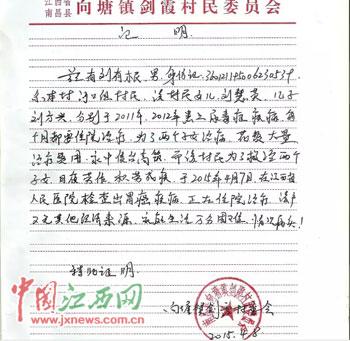 江西省
南昌县
向塘镇剑霞村民委员会
证 明
兹有刘有根,男,身份证
系本村 村民,该村民女儿刘慧英,儿子
刘方兴,分别于2011年,2012年患上尿毒症疾病,每
个月都要住院治疗,为了两个子女治病,花费大量
治疗费用,家中债台高筑,而该村民为了救治两个
子女,日夜劳作,积劳成疾,于2015年4月7日,在江西省
人民医院检查出胃癌疾病,正在住院治疗,该户
又无其他经济来源,家庭生活万分困难,情况属实!
特此证明
向塘镇剑霞村委会
2015.4.8
中国江西网
www.jxnews.com.cn